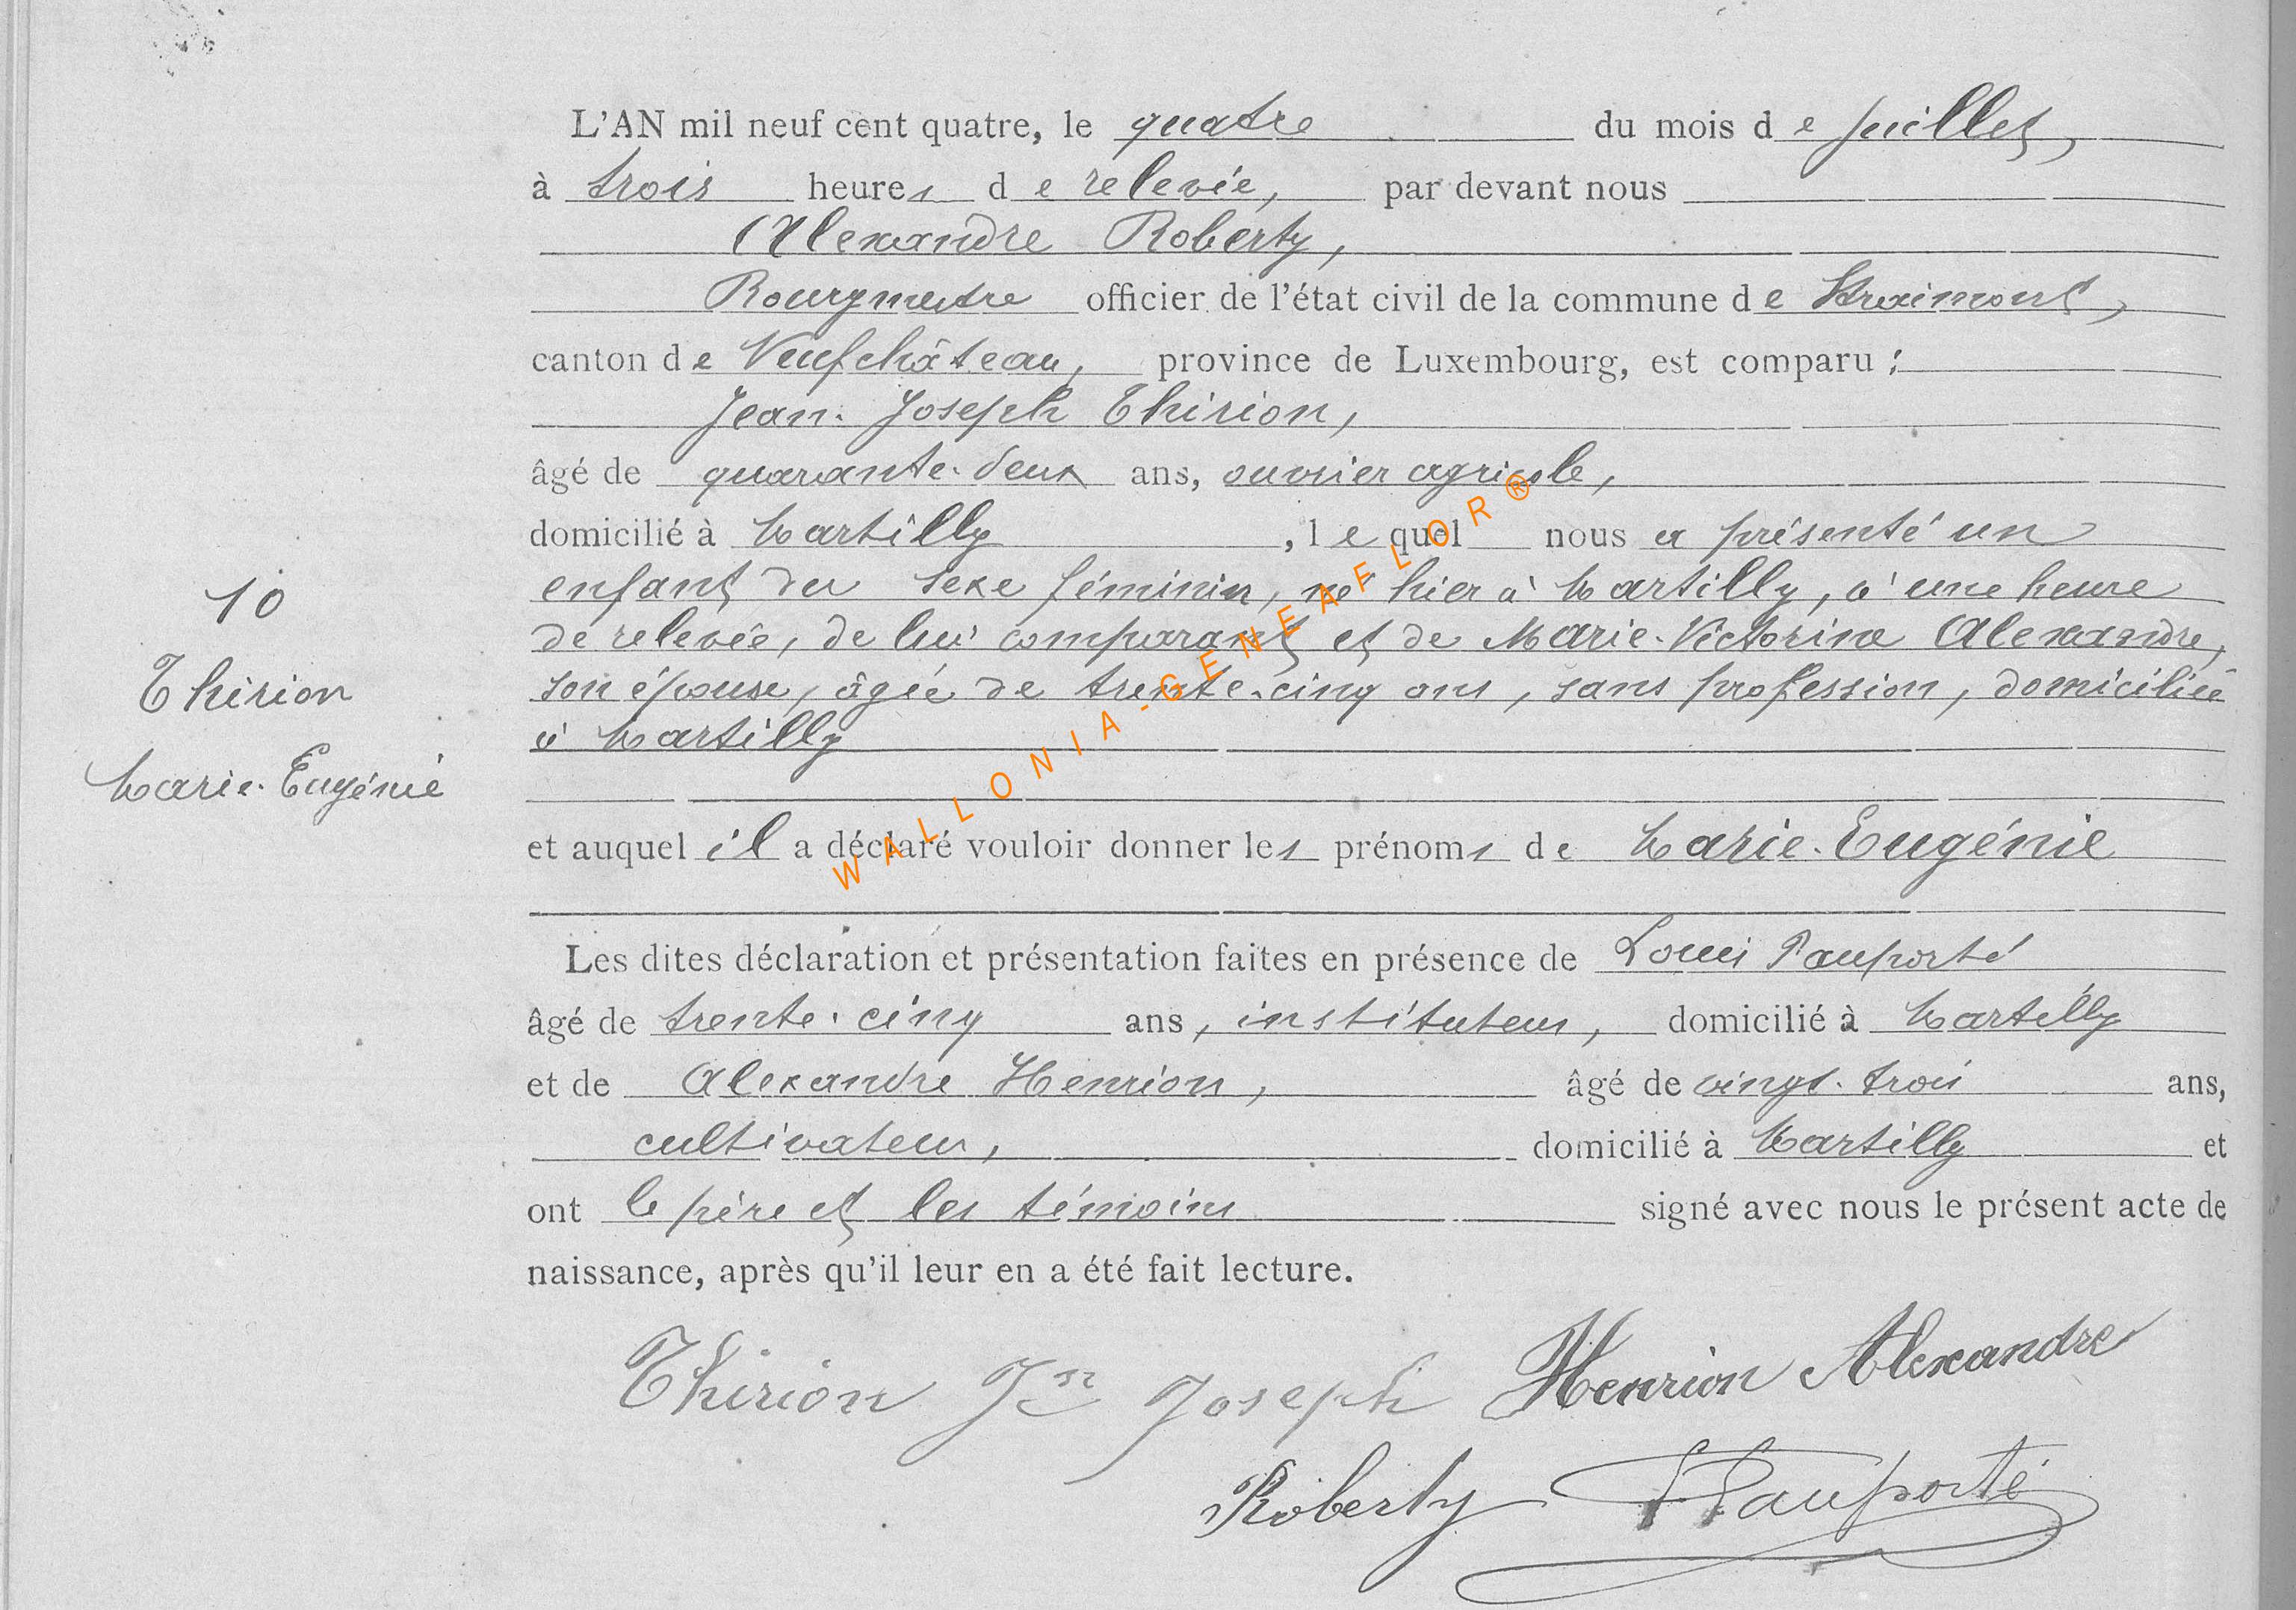 L'AN mil neuf cent quatre, le quatre du mois de juillet,
à trois heures de relevée, par devant nous
Alexandre Roberty,
Bourgmestre officier de l'état civil de la commune de Straimont,
canton de Neufchâteau, province de Luxembourg, est comparu :
Jean-Joseph Thirion,
âgé de quarante-deux ans, ouvrier agricole,
domicilié à Martilly, lequel nous a présenté un
enfant du sexe féminin, né hier à Martilly, à une heure
de relevée, de lui comparant et de Marie-Victorine Alexandre,
son épouse, âgée de trente-cinq ans, sans profession, domiciliée
à Martilly
10
Thirion
Marie-Eugénie
et auquel il a déclaré vouloir donner les prénoms de Marie-Eugénie
Les dites déclaration et présentation faites en présence de Louis Pauporté
âgé de trente-cinq ans, instituteur, domicilié à Martilly
et de Alexandre Henrion, âgé de vingt-trois ans,
cultivateur, domicilié à Martilly et
ont le père et les témoins signé avec nous le présent acte de
naissance, après qu'il leur en a été fait lecture.
Thirion Jn Joseph Henrion Alexandre
Roberty Pauporté
WALLONIA-GENEAFLOR®